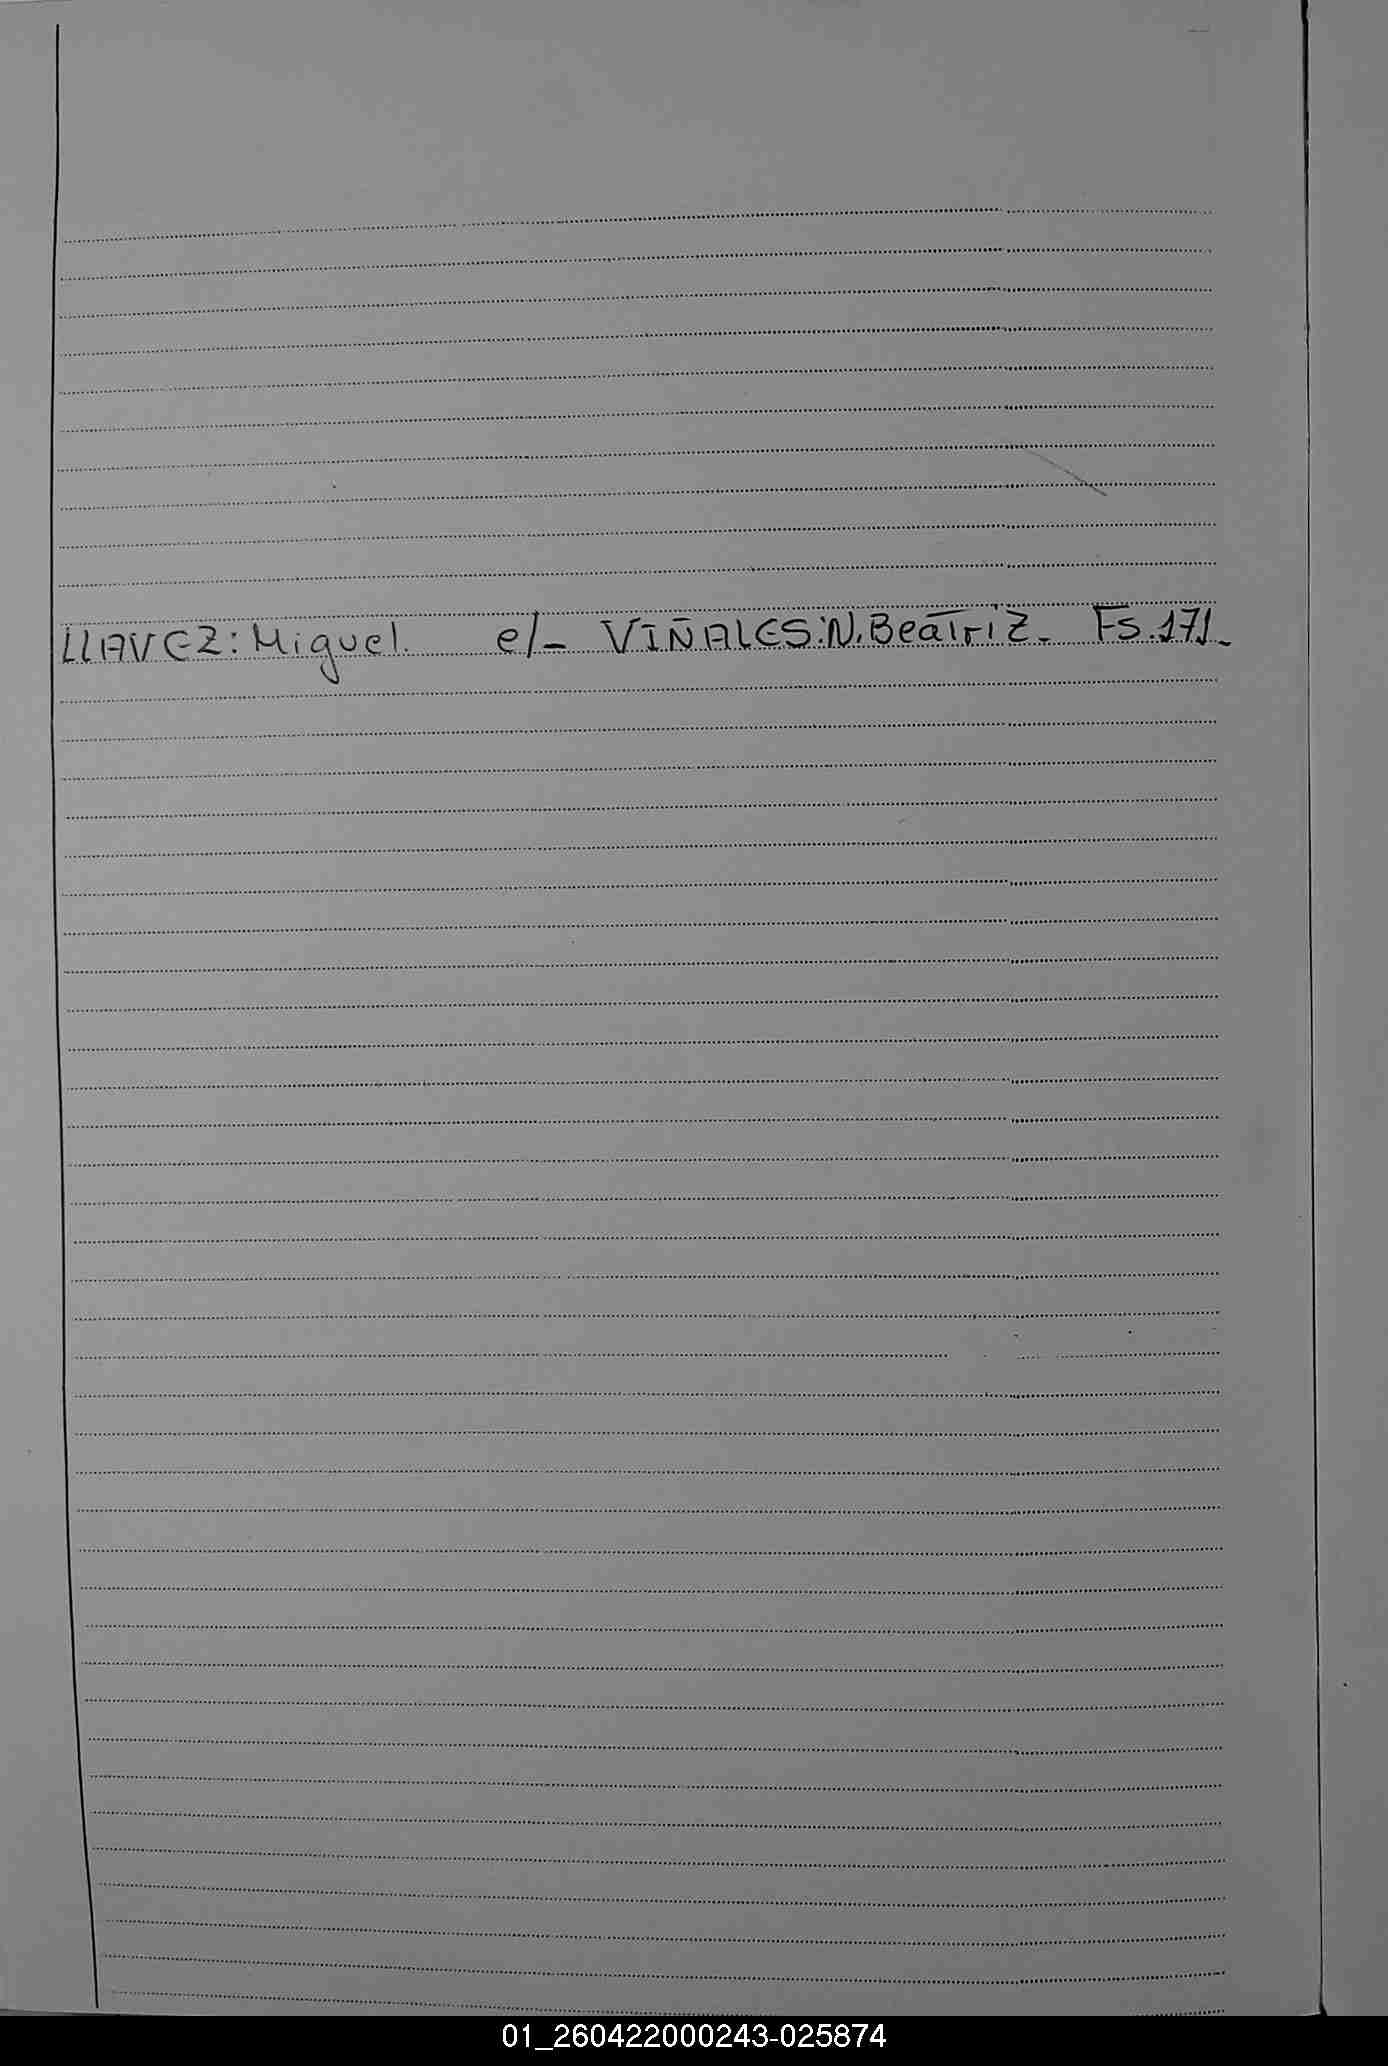 LLAVEZ: Miguel. e/- VIÑALES: N. Beatriz. Fs. 171.
01_260422000243-025874